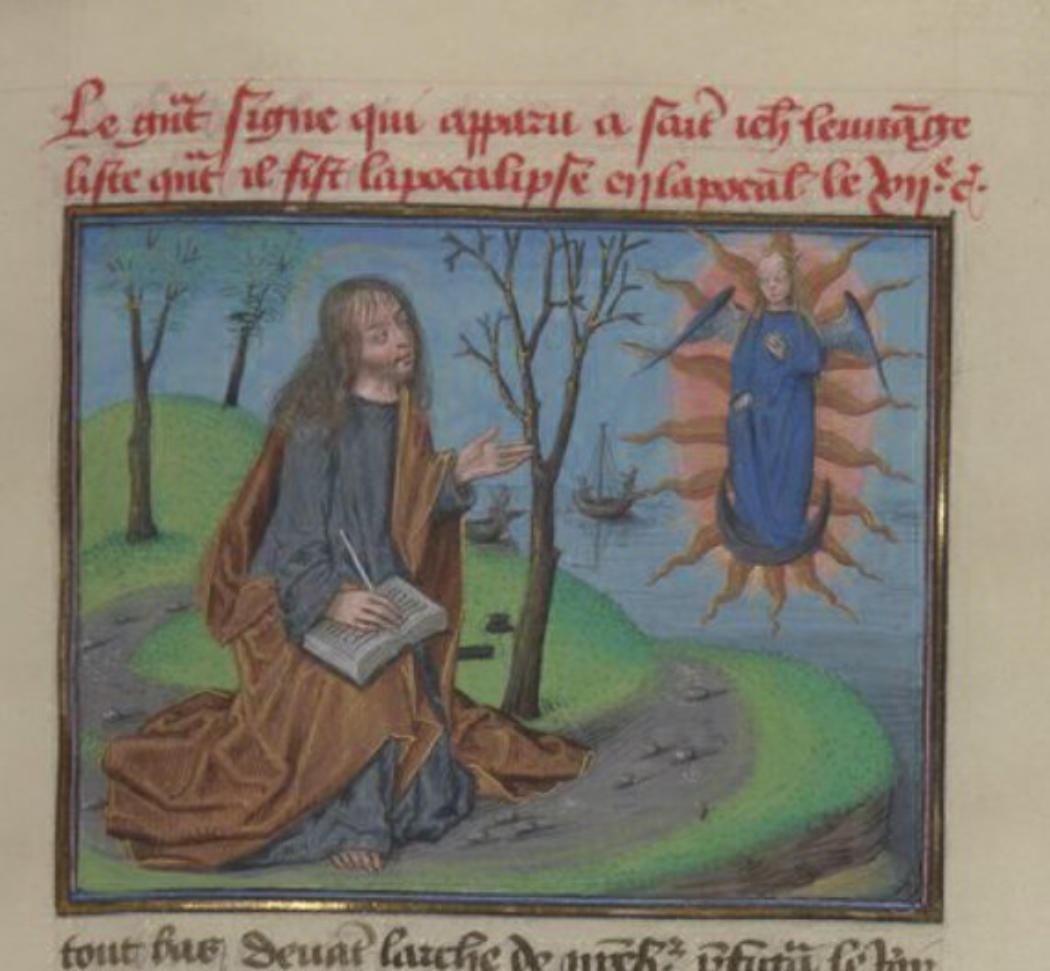 Le gñt signe qui apparu a saīt ieħ leuuāge
liste qñt il fist lapocalipse en lapocal le xii.e c.
tout bas deuāt larche de